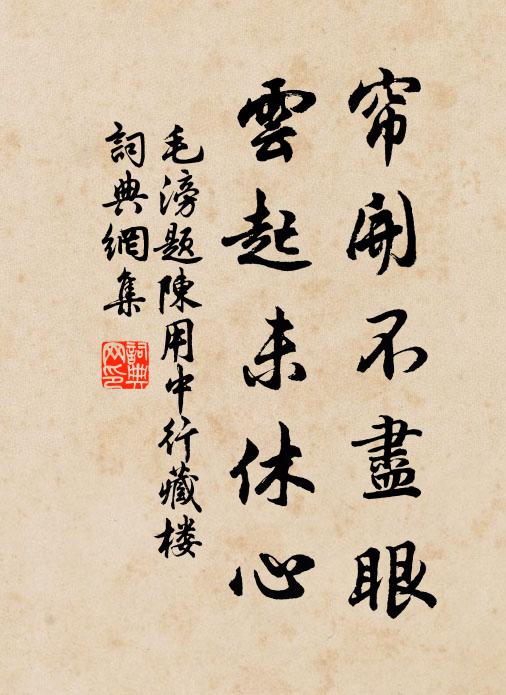 帘開不盡眼
雲起未休心
毛滂題陳用中行藏楼
詞典網集
詞典
网印